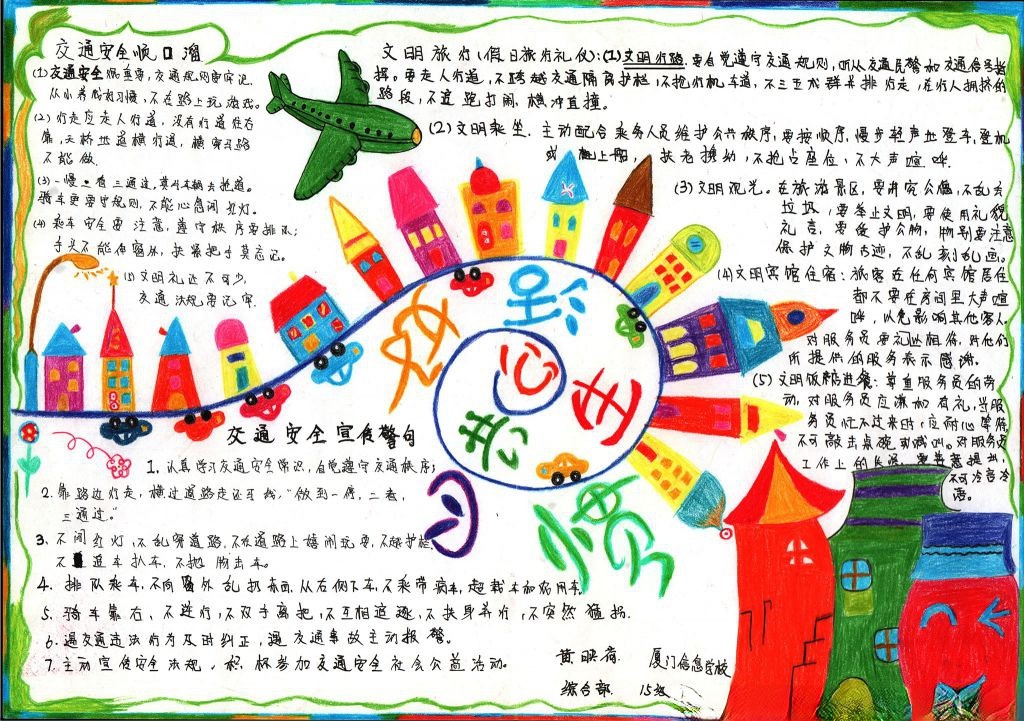 交通安全顺口溜
(1)交通安全很重要,交通规则要牢记,
从小养成好习惯,不在路上玩游戏。
(2)行走应走人行道,没有行道往右
靠,天桥地道横行道,横穿马路
不能做.
(3)一慢二看三通过,莫与车辆去抢道。
骑车更要守规则,不能心急闯红灯。
(4)乘车安全要注意,遵守秩序要排队;
手头不能伸窗外,扶紧把手莫忘记。
(5)文明礼让不可少,
交通法规要记牢.
文明旅行(假日旅行礼仪):(1)文明行路,要自觉遵守交通规则,听从交通民警和交通信号指
挥。要走人行道,不跨越交通隔离护栏,不抢行机车道,不三五成群并排行走,在行人拥挤的
路段,不追跑打闹、横冲直撞。
(2)文明乘坐.主动配合乘务人员维护公共秩序,要按顺序,慢步轻声地登车、登机
或上船,扶老携幼,不抢占座位,不大声喧哗.
(3)文明观光。在旅游景区,要讲究公德,不乱丢
垃圾,要举止文明,要使用礼貌
礼言,要爱护公物,特别要注意
保护文物古迹,不乱刻乱画。
(4)文明宾馆住宿:旅客在任何宾馆居住
都不要在房间里大声喧
哗,以免影响其他客人.
对服务员要礼貌相待,对他们
所提供的服务表示感谢。
(5)文明饭店进餐:尊重服务员的劳
动,对服务员应谦和有礼,当服
务员忙不过来时,应耐心等候
不可敲击桌碗或喊叫。对服务员
工作上的失误,要善意提出,
不可冷言冷
语。
安全记心中 养成习惯
交通安全宣传警句
1.认真学习交通安全常识,自觉遵守交通秩序;
2.靠路边行走,横过道路走斑马线,"做到一停,二看,
三通过。"
3.不闯红灯,不乱穿道路,不在道路上嬉闹玩耍,不越护栏,
不追车扒车,不抛物击车。
4.排队乘车,不向窗外乱扔东西,从右侧下车,不乘带病车,超载车和农用车.
5.骑车靠右、不逆行,不双手离把,不互相追逐,不扶身并行,不突然猛拐.
6.遇交通违法行为及时纠正,遇交通事故主动报警。
7.主动宣传安全法规,积极参加交通安全社会公益活动。
厦门信息学校
综合部 15级